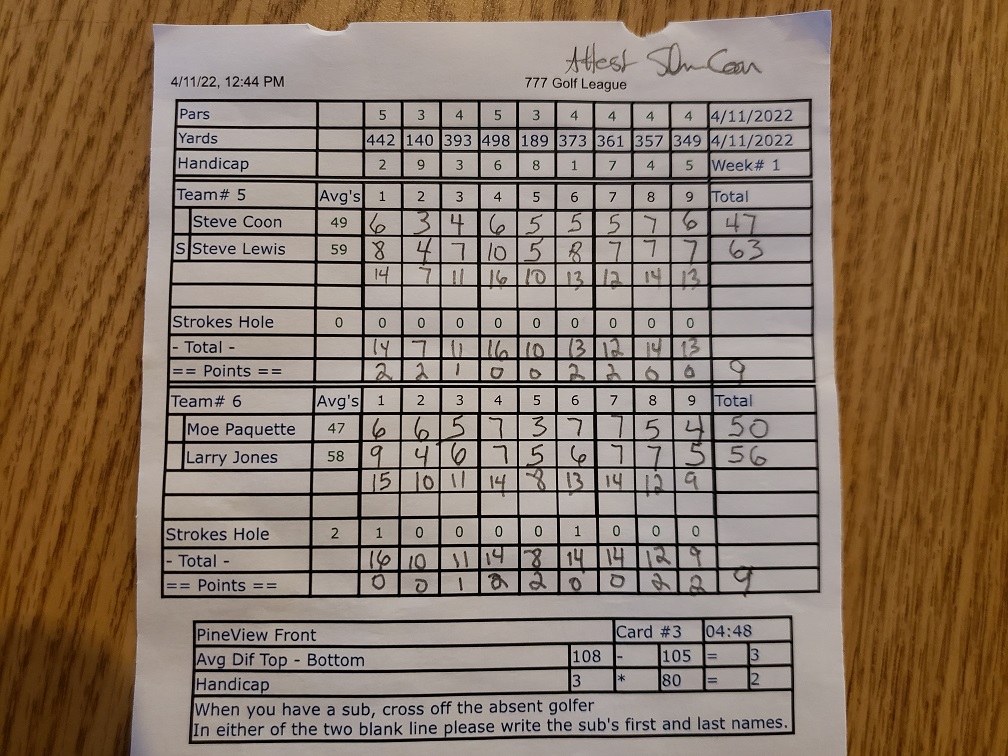 Attest
4/11/22, 12:44 PM 777 Golf League
Pars 5 3 4 5 3 4 4 4 4 4/11/2022
Yards 442 140 393 498 189 373 361 357 349 4/11/2022
Handicap 2 9 3 6 8 1 7 4 5 Week# 1
Team# 5 Avg's 1 2 3 4 5 6 7 8 9 Total
Steve Coon 49 6 3 4 6 5 5 5 7 6 47
S Steve Lewis 59 8 4 7 10 5 8 7 7 7 63
14 7 11 16 10 13 12 14 13
Strokes Hole 0 0 0 0 0 0 0 0 0 0
- Total - 14 7 11 16 10 13 12 14 13
== Points == 2 2 1 0 0 2 2 0 0 9
Team# 6 Avg's 1 2 3 4 5 6 7 8 9 Total
Moe Paquette 47 6 6 5 7 3 7 7 5 4 50
Larry Jones 58 9 4 6 7 5 6 7 7 5 56
15 10 11 14 8 13 14 12 9
Strokes Hole 2 1 0 0 0 0 1 0 0 0
- Total - 16 10 11 14 8 14 14 12 9
== Points == 0 0 1 2 2 0 0 2 2 9
PineView Front Card #3 04:48
Avg Dif Top - Bottom 108 - 105 = 3
Handicap 3 * 80 = 2
When you have a sub, cross off the absent golfer
In either of the two blank line please write the sub's first and last names.